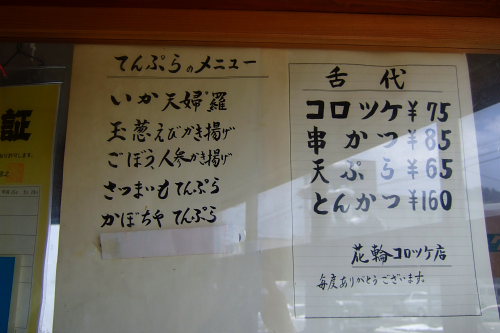 証
てんぷらのメニュー
いか天婦羅
玉葱えびかき揚げ
ごぼう人参かき揚げ
さつまいもてんぷら
かぼちやてんぷら
舌代
コロツケ¥75
串かつ¥85
天ぷら¥65
とんかつ¥160
花輪コロツケ店
毎度ありがとうございます。